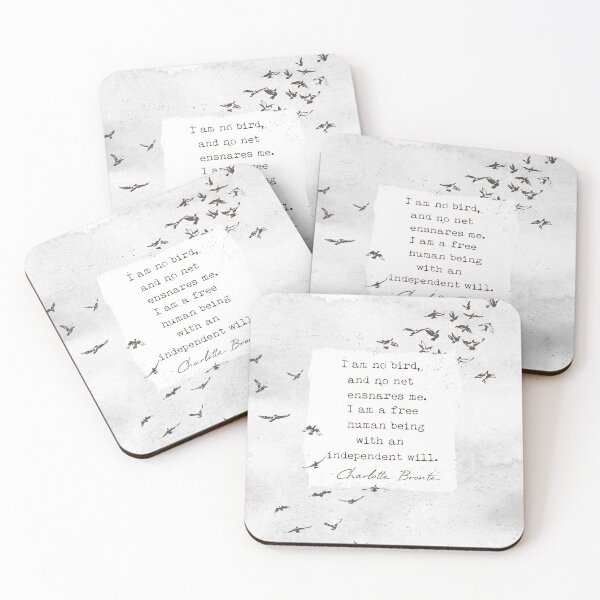 I am no bird,
and no net
ensnares me.
I am a free
I am no bird,
and no net
ensnares me.
I am a free
human being
with an
independent will.
I am no bird,
and no net
ensnares me.
I am a free
human being
with an
independent will.
- Charlotte Bronte
I am no bird,
and no net
ensnares me.
I am a free
human being
with an
independent will.
- Charlotte Bronte-